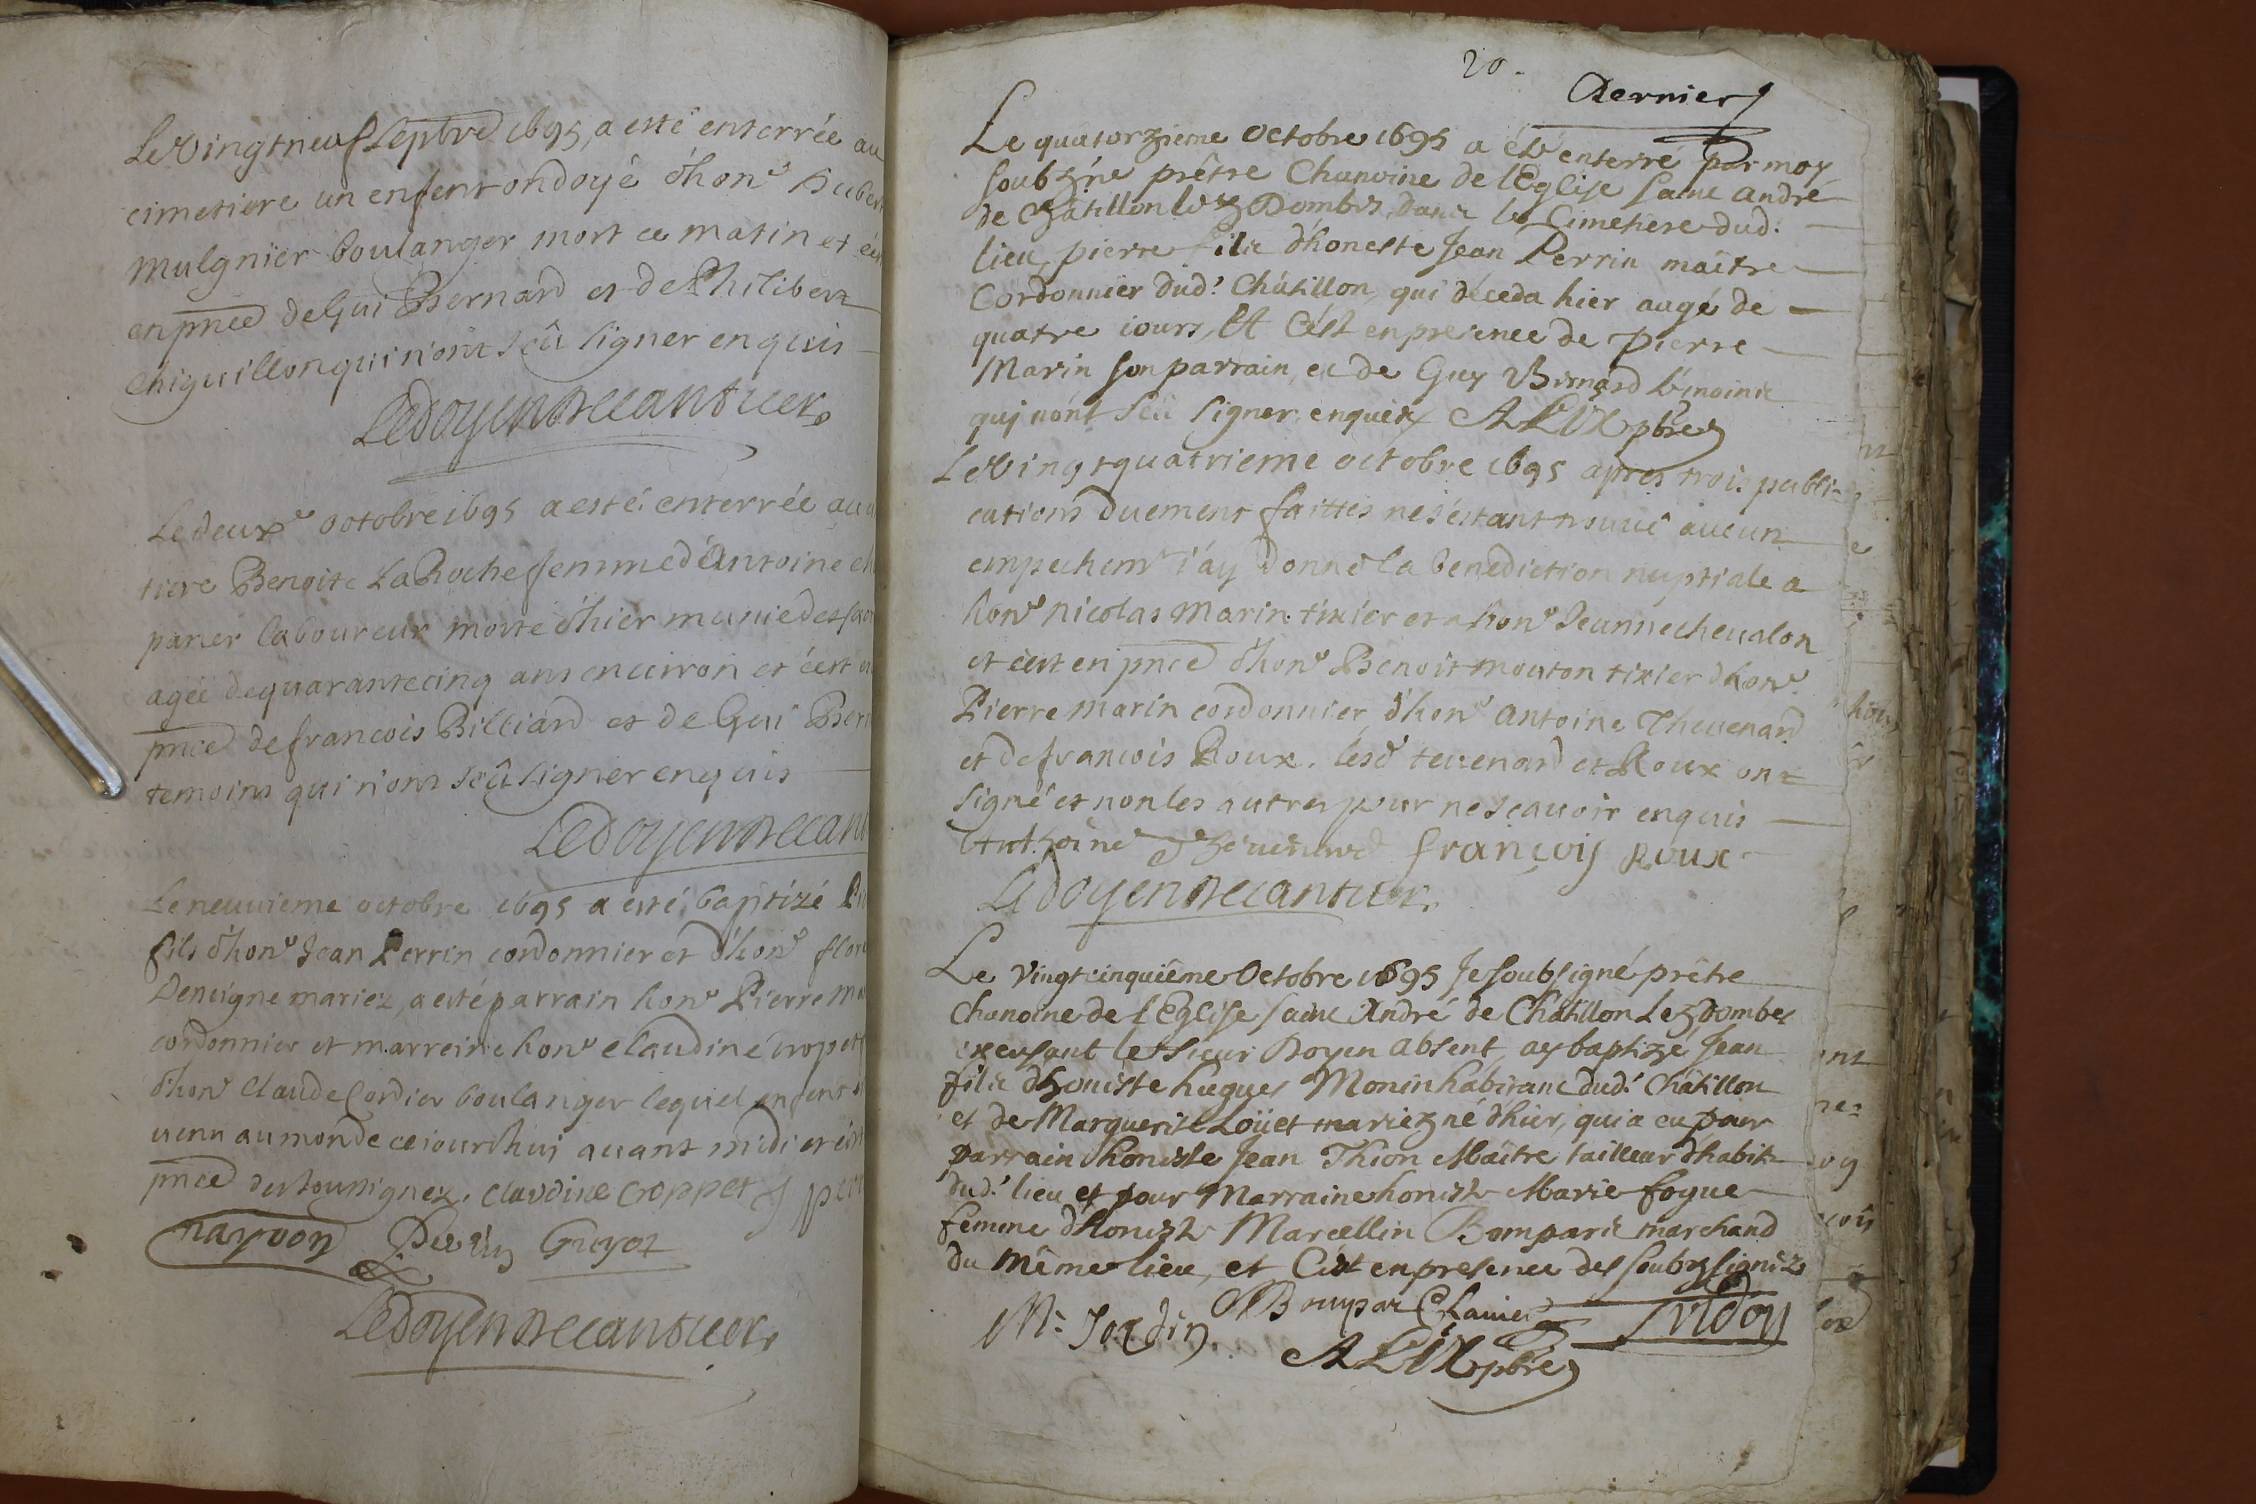 Le vingt neuf septbre 1695, a esté enterrée au
cimetiere un enfent ondoyé d'hon.e
mulgnier boulanger mort ce matin et
en pnce de Gui Bernard et de Philibert
chiguillon qui n'ont sçû signer enquis
Ledoyen
Le deuxe octobre 1695 a esté enterrée au
tiere Benoite La Roche femme d'Antoine
paner laboureur morte d'hier munie des
agée de quarante cinq ans environ et c'est
pnce de francois Billiard et de Gui Ber
temoins qui n'ont sçû signer enquis
Ledoyen
Le neuvieme octobre 1695 a esté baptizé
fils d'hon.e Jean Perrin cordonnier et d'hon.e flor
Devigne mariez, a esté parrain hon.e Pierre Ma
cordonnier et marreine hon.e Claudine cropet
d'hon.e Claude Cordier boulanger lequel enfent
venu au monde ce iourd'hui avant midi et c'est
pnce des soussignez. claudine croppet
Perrin Guyot
Ledoyen
20.
Dernier
Le quatorzieme Octobre 1695 a été enterré par moy
soubzne prêtre Chanoine de l'Eglise saint André
de Châtillon lez Dombes, dans le Cimetiere dud.
lieu, pierre fils d'honeste Jean Perrin maître
Cordonnier dud.t Châtillon, qui déceda hier augé de
quatre iours, Et C'est en presence de pierre
Marin son parrain, et de Guy Bernard témoins
qui n'ont sçû signer enquis ALIX pbre
Le vingt quatrieme octobre 1695 apres trois publi-
cations duement faittes ne s'estant trouvé aucun
empechemt i'ay donné la benediction nuptiale a
hon.e Nicolas Marin tixier et a hon.e Jeanne chevalon
et c'est en pnce d'hon.e Benoit mouton tixier d'hon.e
Pierre marin cordonnier d'hon.e Antoine Thevenard
et de francois Roux. lesd. tevenard et Roux ont
signé et non les autres pour ne sçavoir enquis
Anthoine Thevenard françois Roux
Ledoyen
Le vingtcinquiême Octobre 1695 Je soubsigné prêtre
Chanoine de l'Eglise saint André de Châtillon Lez Dombes
exerçant le sieur Doyen absent, ay baptizé Jean
fils d'honeste hugues Monin habitant dud.t Châtillon
et de Marguerite Loüet mariez né d'hier, qui a eu pour
parrain honeste Jean Thion Maître tailleur d'habits
dud.t lieu et pour Marraine honeste Marie fogue
femme d'honeste Marcellin Bompard marchand
du même lieu, et C'est en presence des soubzsignéz
M. Jordin Bompar
ALIX pbre